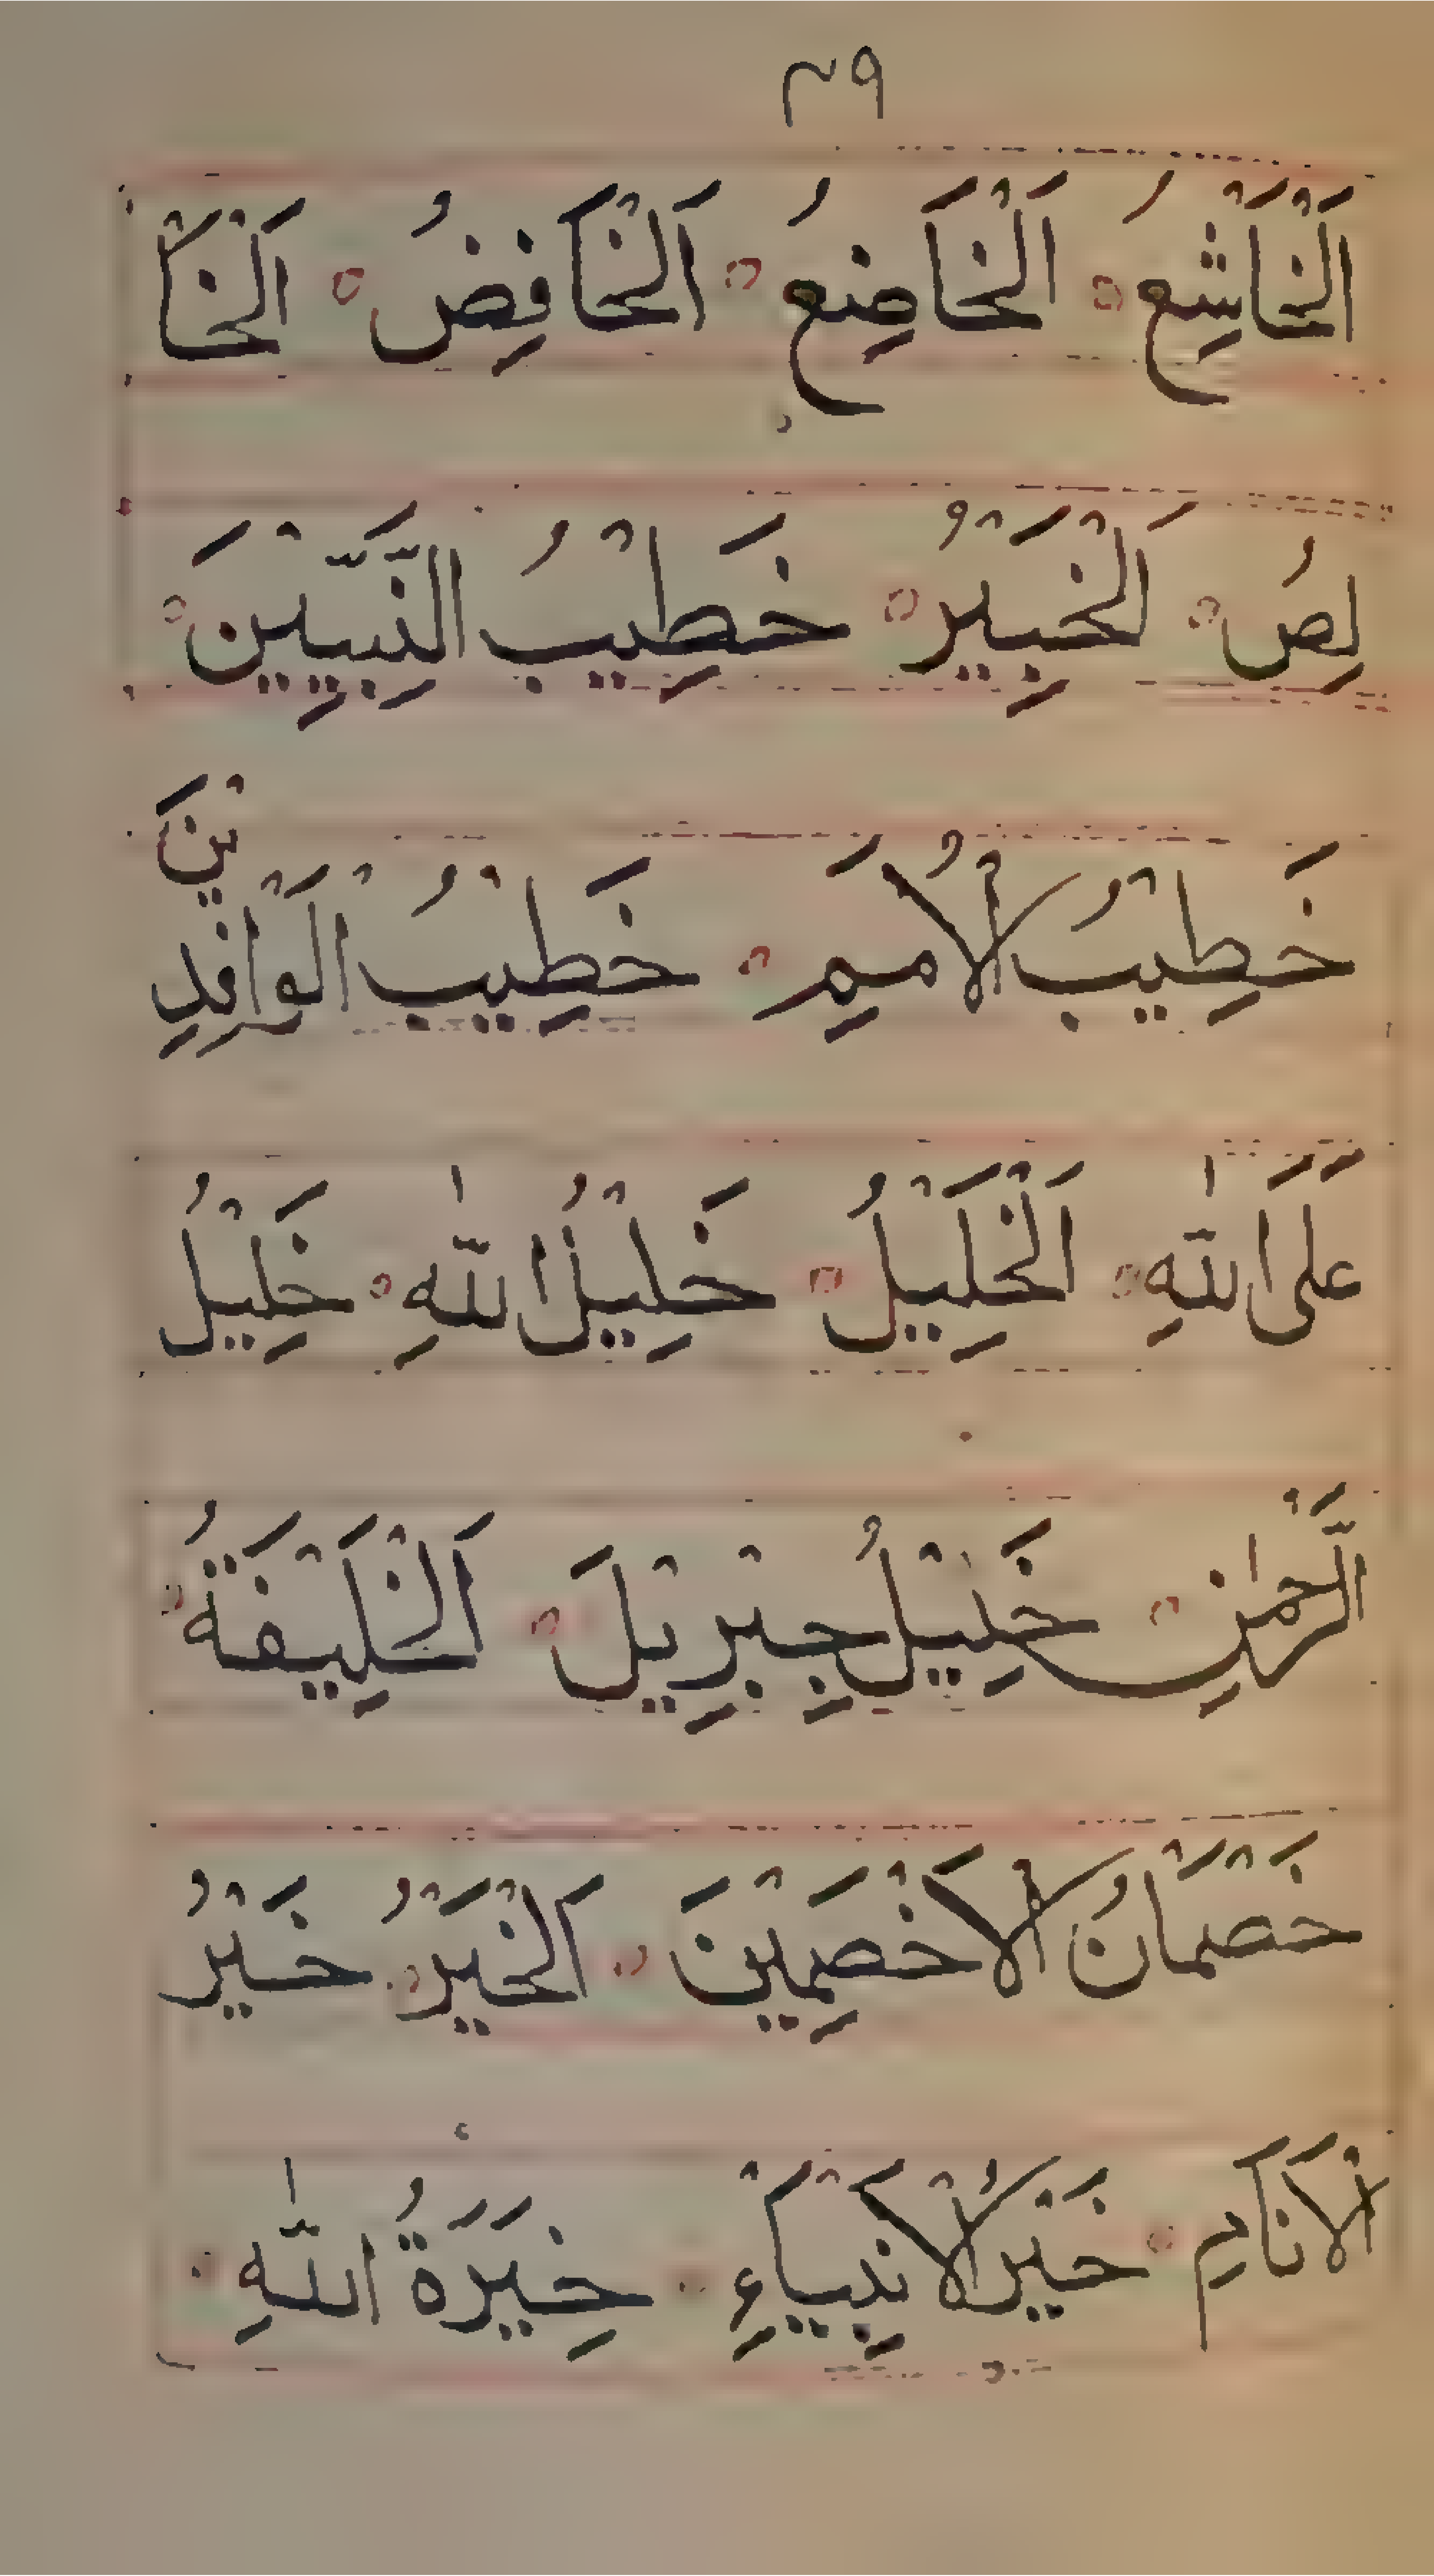 ٣٩
اَلْخَاشِعُ ○ اَلْخَاضِعُ ○ اَلْخَافِضُ ○ اَلْخَا
لِصُ ○ اَلْخَبِيْرُ ○ خَطِيْبُ النَّبِيِّيْنَ ○
خَطِيْبُ الْاُمَمِ ○ خَطِيْبُ الْوَافِدِيْنَ
عَلَى اللّٰهِ ○ اَلْخَلِيْلُ ○ خَلِيْلُ اللّٰهِ ○ خَلِيْلُ
الرَّحْمٰنِ ○ خَلِيْلُ جِبْرِيْلَ ○ اَلْخَلِيْفَةُ ○
خَصْمَانُ الْاَخْصَمِيْنَ ○ اَلْخَيْرُ ○ خَيْرُ
الْاَنَامِ ○ خَيْرُ الْاَنْبِيَاءِ ○ خِيَرَةُ اللّٰهِ ○